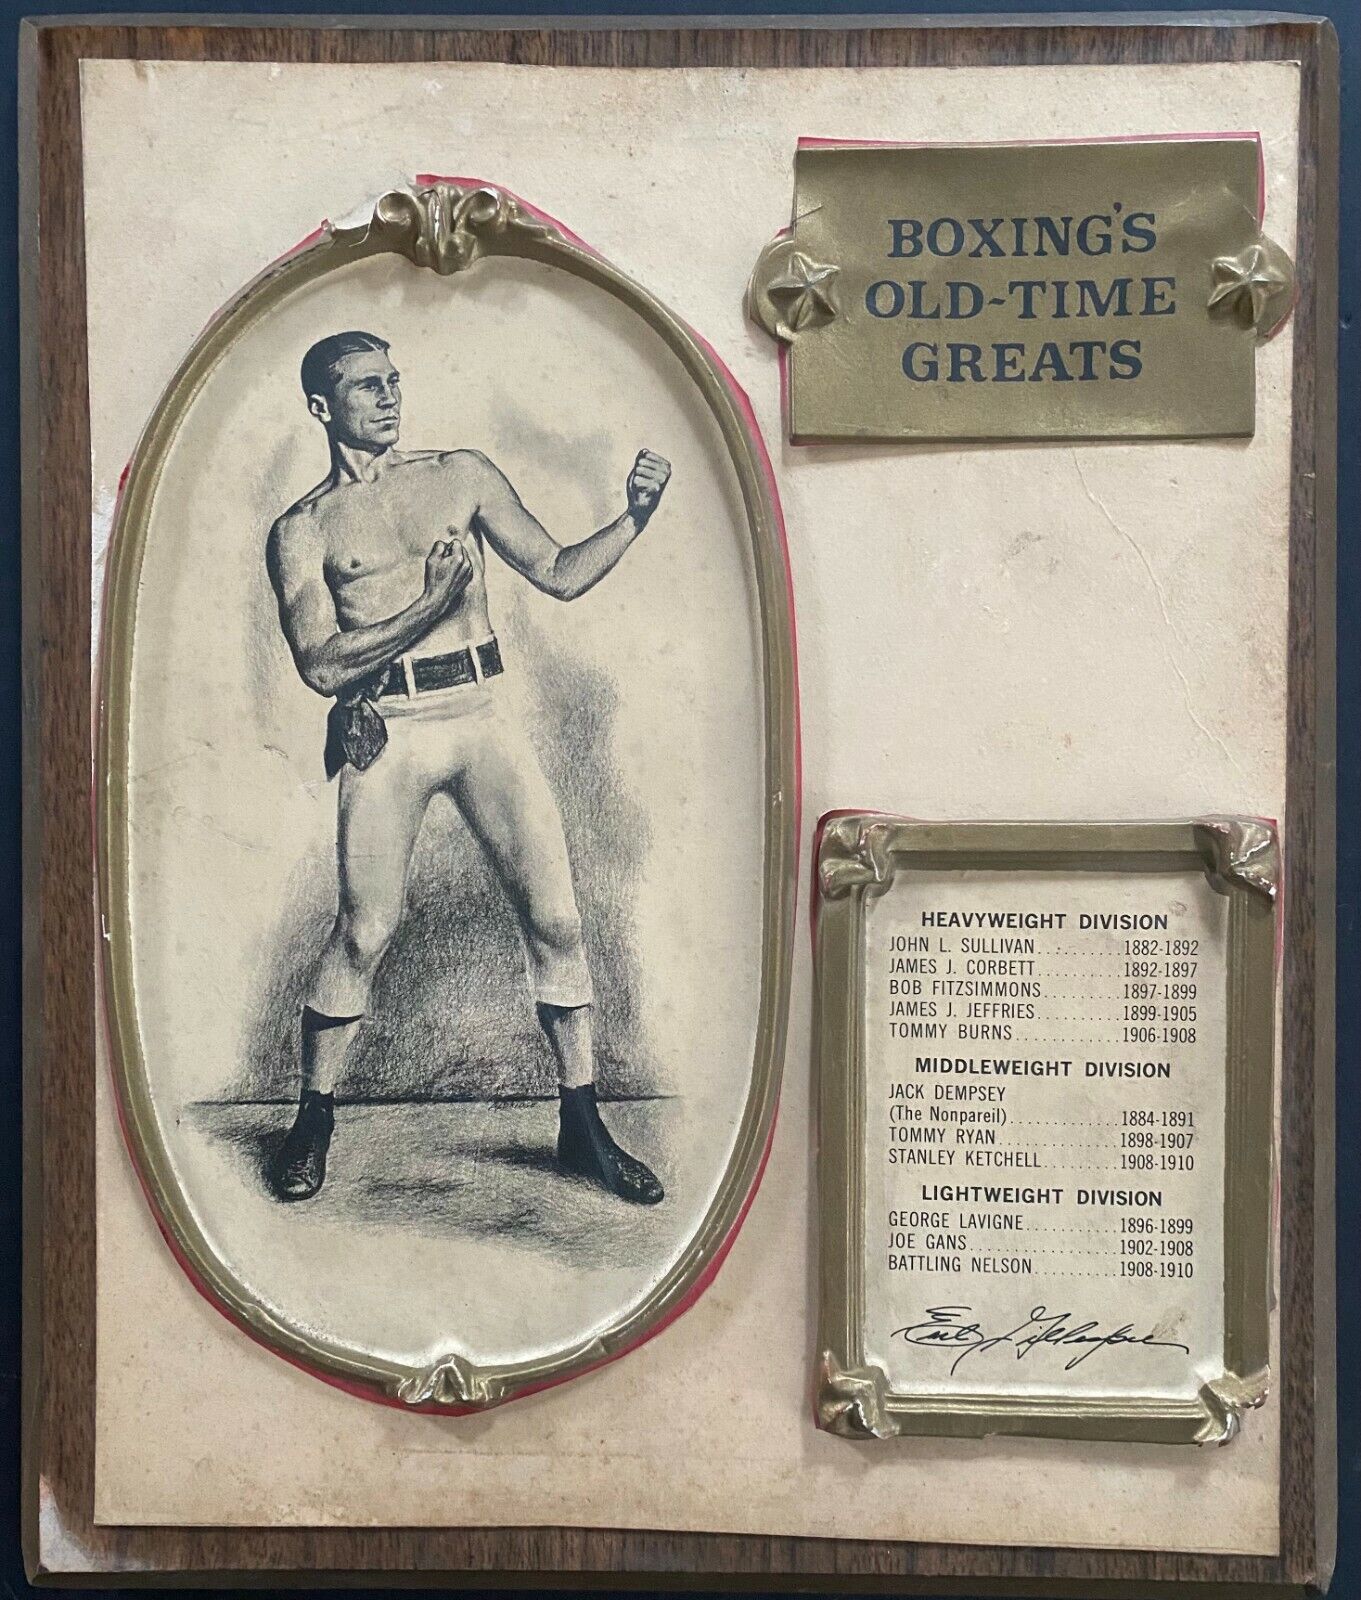 BOXING'S
OLD-TIME
GREATS
HEAVYWEIGHT DIVISION
JOHN L. SULLIVAN.........1882-1892
JAMES J. CORBETT.........1892-1897
BOB FITZSIMMONS.........1897-1899
JAMES J. JEFFRIES.........1899-1905
TOMMY BURNS............1906-1908
MIDDLEWEIGHT DIVISION
JACK DEMPSEY
(The Nonpareil).............1884-1891
TOMMY RYAN............1898-1907
STANLEY KETCHELL........1908-1910
LIGHTWEIGHT DIVISION
GEORGE LAVIGNE..........1896-1899
JOE GANS................1902-1908
BATTLING NELSON.........1908-1910